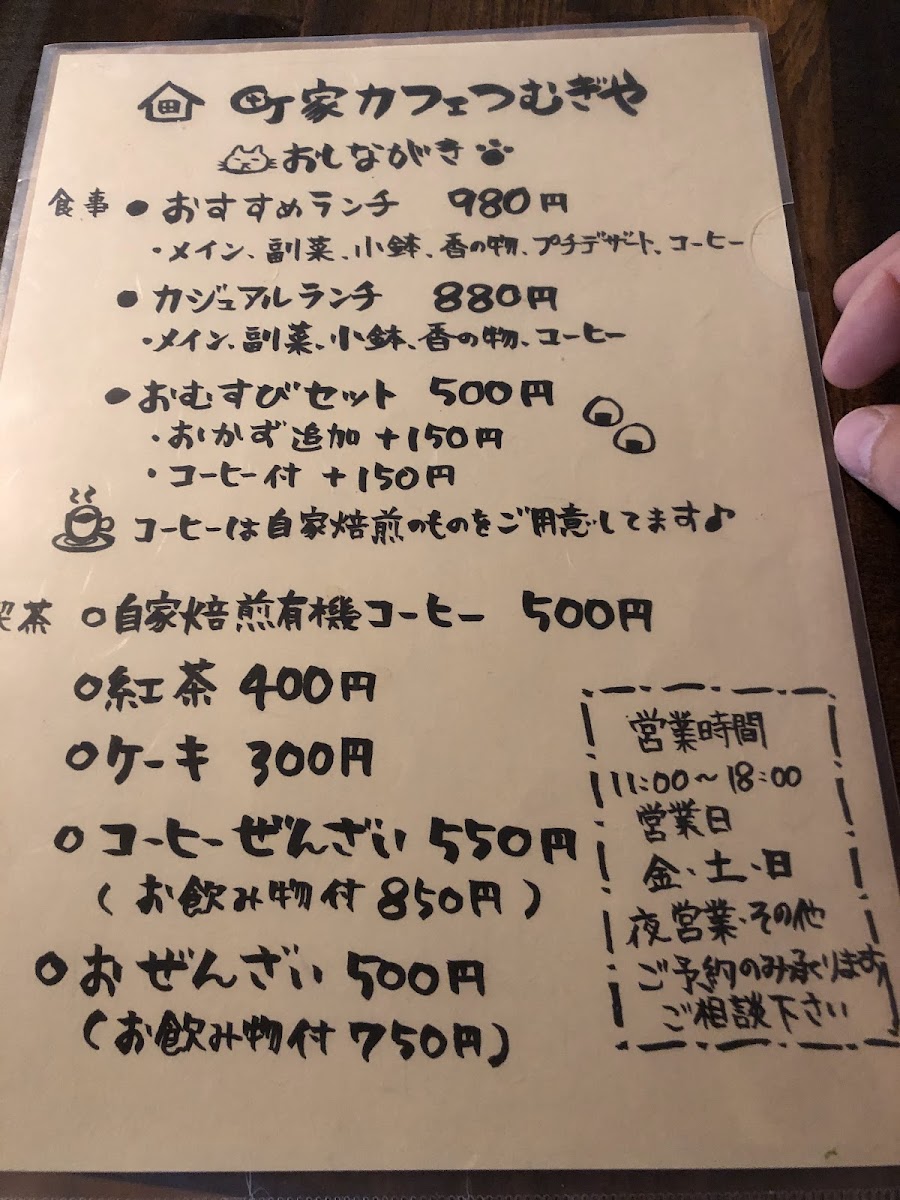 町家カフェつむぎや
おしながき
食事 ● おすすめランチ 980円
・メイン、副菜、小鉢、香の物、プチデザート、コーヒー
● カジュアルランチ 880円
・メイン、副菜、小鉢、香の物、コーヒー
● おむすびセット 500円
・おかず追加 +150円
・コーヒー付 +150円
コーヒーは自家焙煎のものをご用意してます♪
喫茶 ○自家焙煎有機コーヒー 500円
○紅茶 400円
○ケーキ 300円
○コーヒーぜんざい 550円
(お飲み物付 850円)
○おぜんざい 500円
(お飲み物付 750円)
営業時間
11:00～18:00
営業日
金・土・日
夜営業・その他
ご予約のみ承ります
ご相談下さい